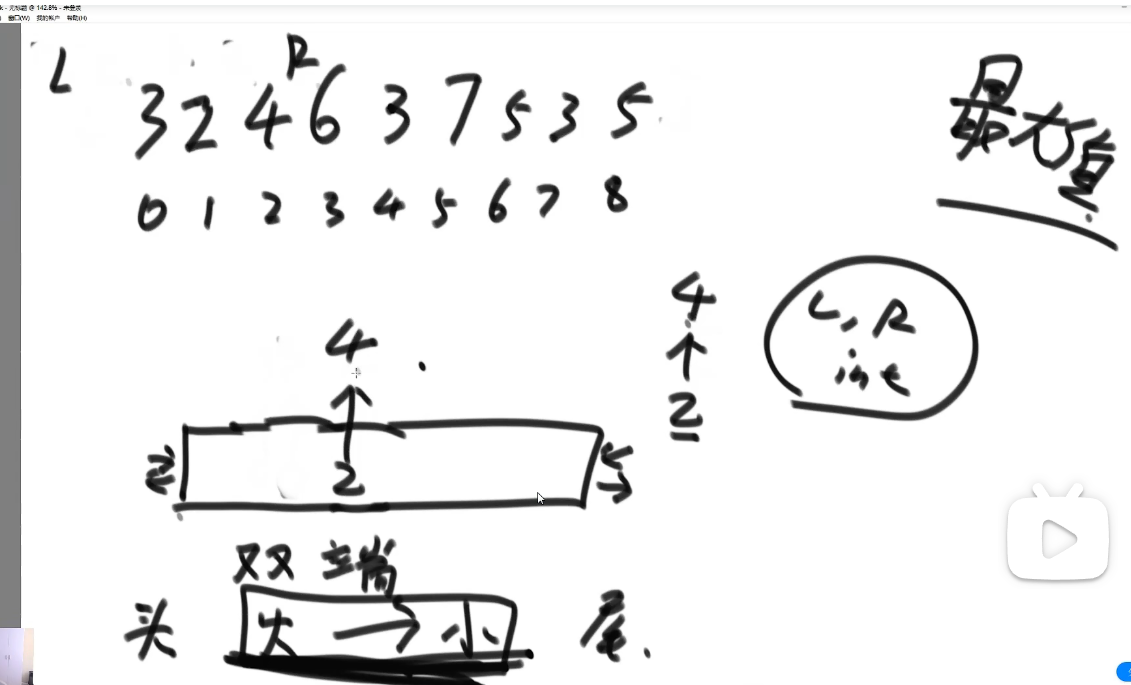 k - 无标题 @ 142.8% - 未登录
窗口(W) 我的帐户 帮助(H)
L R
3 2 4 6 3 7 5 3 5
0 1 2 3 4 5 6 7 8
最大值
4
↑
2
L, R
int
4
↑
2
双端
头 大 → 小 尾